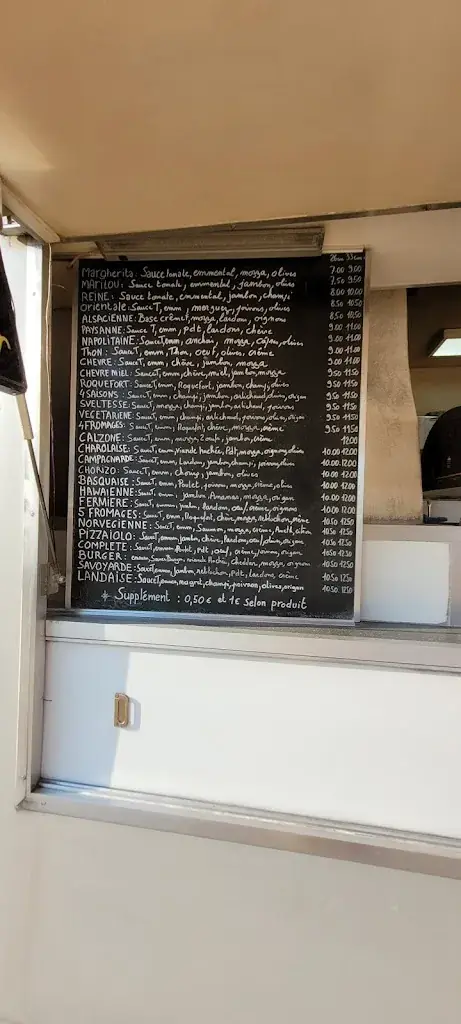 26cm 33cm
Margherita: Sauce tomate, emmental, mozza, olives 7.00 9.00
MARILOU: Sauce tomate, emmental, jambon, olives 7.50 9.50
REINE: Sauce tomate, emmental, jambon, champi 8.00 10.00
orientale: Sauce T, emm, merguez, poivrons, olives 8.50 10.50
ALSACIENNE: Base crème, mozza, lardons, oignons 8.50 10.50
PAYSANNE: Sauce T, emm, pdt, lardons, chèvre 9.00 11.00
NAPOLITAINE: Sauce T, emm, anchois, mozza, capres, olives 9.00 11.00
Thon: Sauce T, emm, Thon, oeuf, olives, crème 9.00 11.00
CHEVRE: Sauce T, emm, chèvre, jambon, mozza 9.00 11.00
CHEVRE MIEL: Sauce T, emm, chèvre, miel, jambon, mozza 9.50 11.50
ROQUEFORT: Sauce T, emm, Roquefort, jambon, champi, olives 9.50 11.50
4 SAISONS: Sauce T, emm, champi, jambon, artichaud, olives, origan 9.50 11.50
SVELTESSE: Sauce T, mozza, champi, jambon, artichaud, poivrons 9.50 11.50
VEGETARIENE: Sauce T, emm, champi, artichaud, poivrons, olives, origan 9.50 11.50
4 FROMAGES: Sauce T, emm, Roquefort, chèvre, mozza, crème 9.50 11.50
CALZONE: Sauce T, emm, mozza, 2 oeufs, jambon, crème 12.00
CHAROLAISE: Sauce T, emm, viande hachée, Pdt, mozza, oignons, olives 10.00 12.00
CAMPAGNARDE: Sauce T, emm, lardons, jambon, champi, poivrons, olives 10.00 12.00
CHORIZO: Sauce T, emm, Chorizo, jambon, olives 10.00 12.00
BASQUAISE: Sauce T, emm, Poulet, poivrons, mozza, crème, olives 10.00 12.00
HAWAIENNE: Sauce T, emm, jambon, Ananas, mozza, origan 10.00 12.00
FERMIERE: Sauce T, emm, jambon, lardons, oeuf, crème, oignons 10.00 12.00
5 FROMAGES: Sauce T, emm, Roquefort, chèvre, mozza, reblochon, crème 10.00 12.00
NORVEGIENNE: Sauce T, emm, Saumon, mozza, crème, Aneth, citron 10.50 12.50
PIZZAIOLO: Sauce T, emm, jambon, chèvre, lardons, oeuf, olives, origan 10.50 12.50
COMPLETE: Sauce T, emm, Poulet, Pdt, oeuf, crème, poivrons, origan 10.50 12.50
BURGER: Sauce Burger, viande hachée, Cheddar, mozza, oignons 10.50 12.50
SAVOYARDE: Sauce T, emm, jambon, reblochon, Pdt, lardons, crème 10.50 12.50
LANDAISE: Sauce T, emm, magret, champi, poivrons, olives, origan 10.50 12.50
* Supplément : 0,50€ et 1€ selon produit